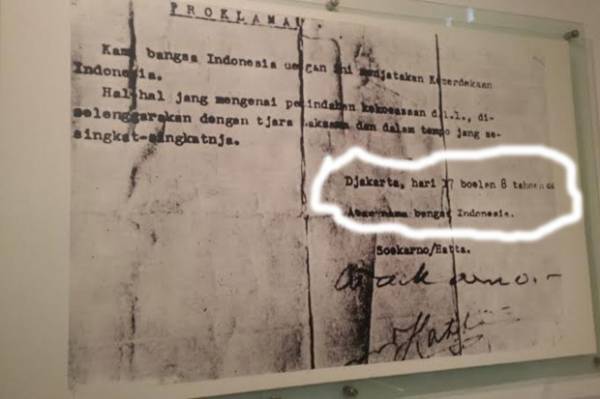 PROKLAMASI
Kami bangsa Indonesia dengan ini menjatakan Kemerdekaan
Indonesia.
Hal-hal jang mengenai pemindahan kekoeasaan d.l.l., di-
selenggarakan dengan tjara saksama dan dalam tempo jang se-
singkat-singkatnja.
Djakarta, hari 17 boelan 8 tahoen 05
Atas nama bangsa Indonesia.
Soekarno/Hatta.